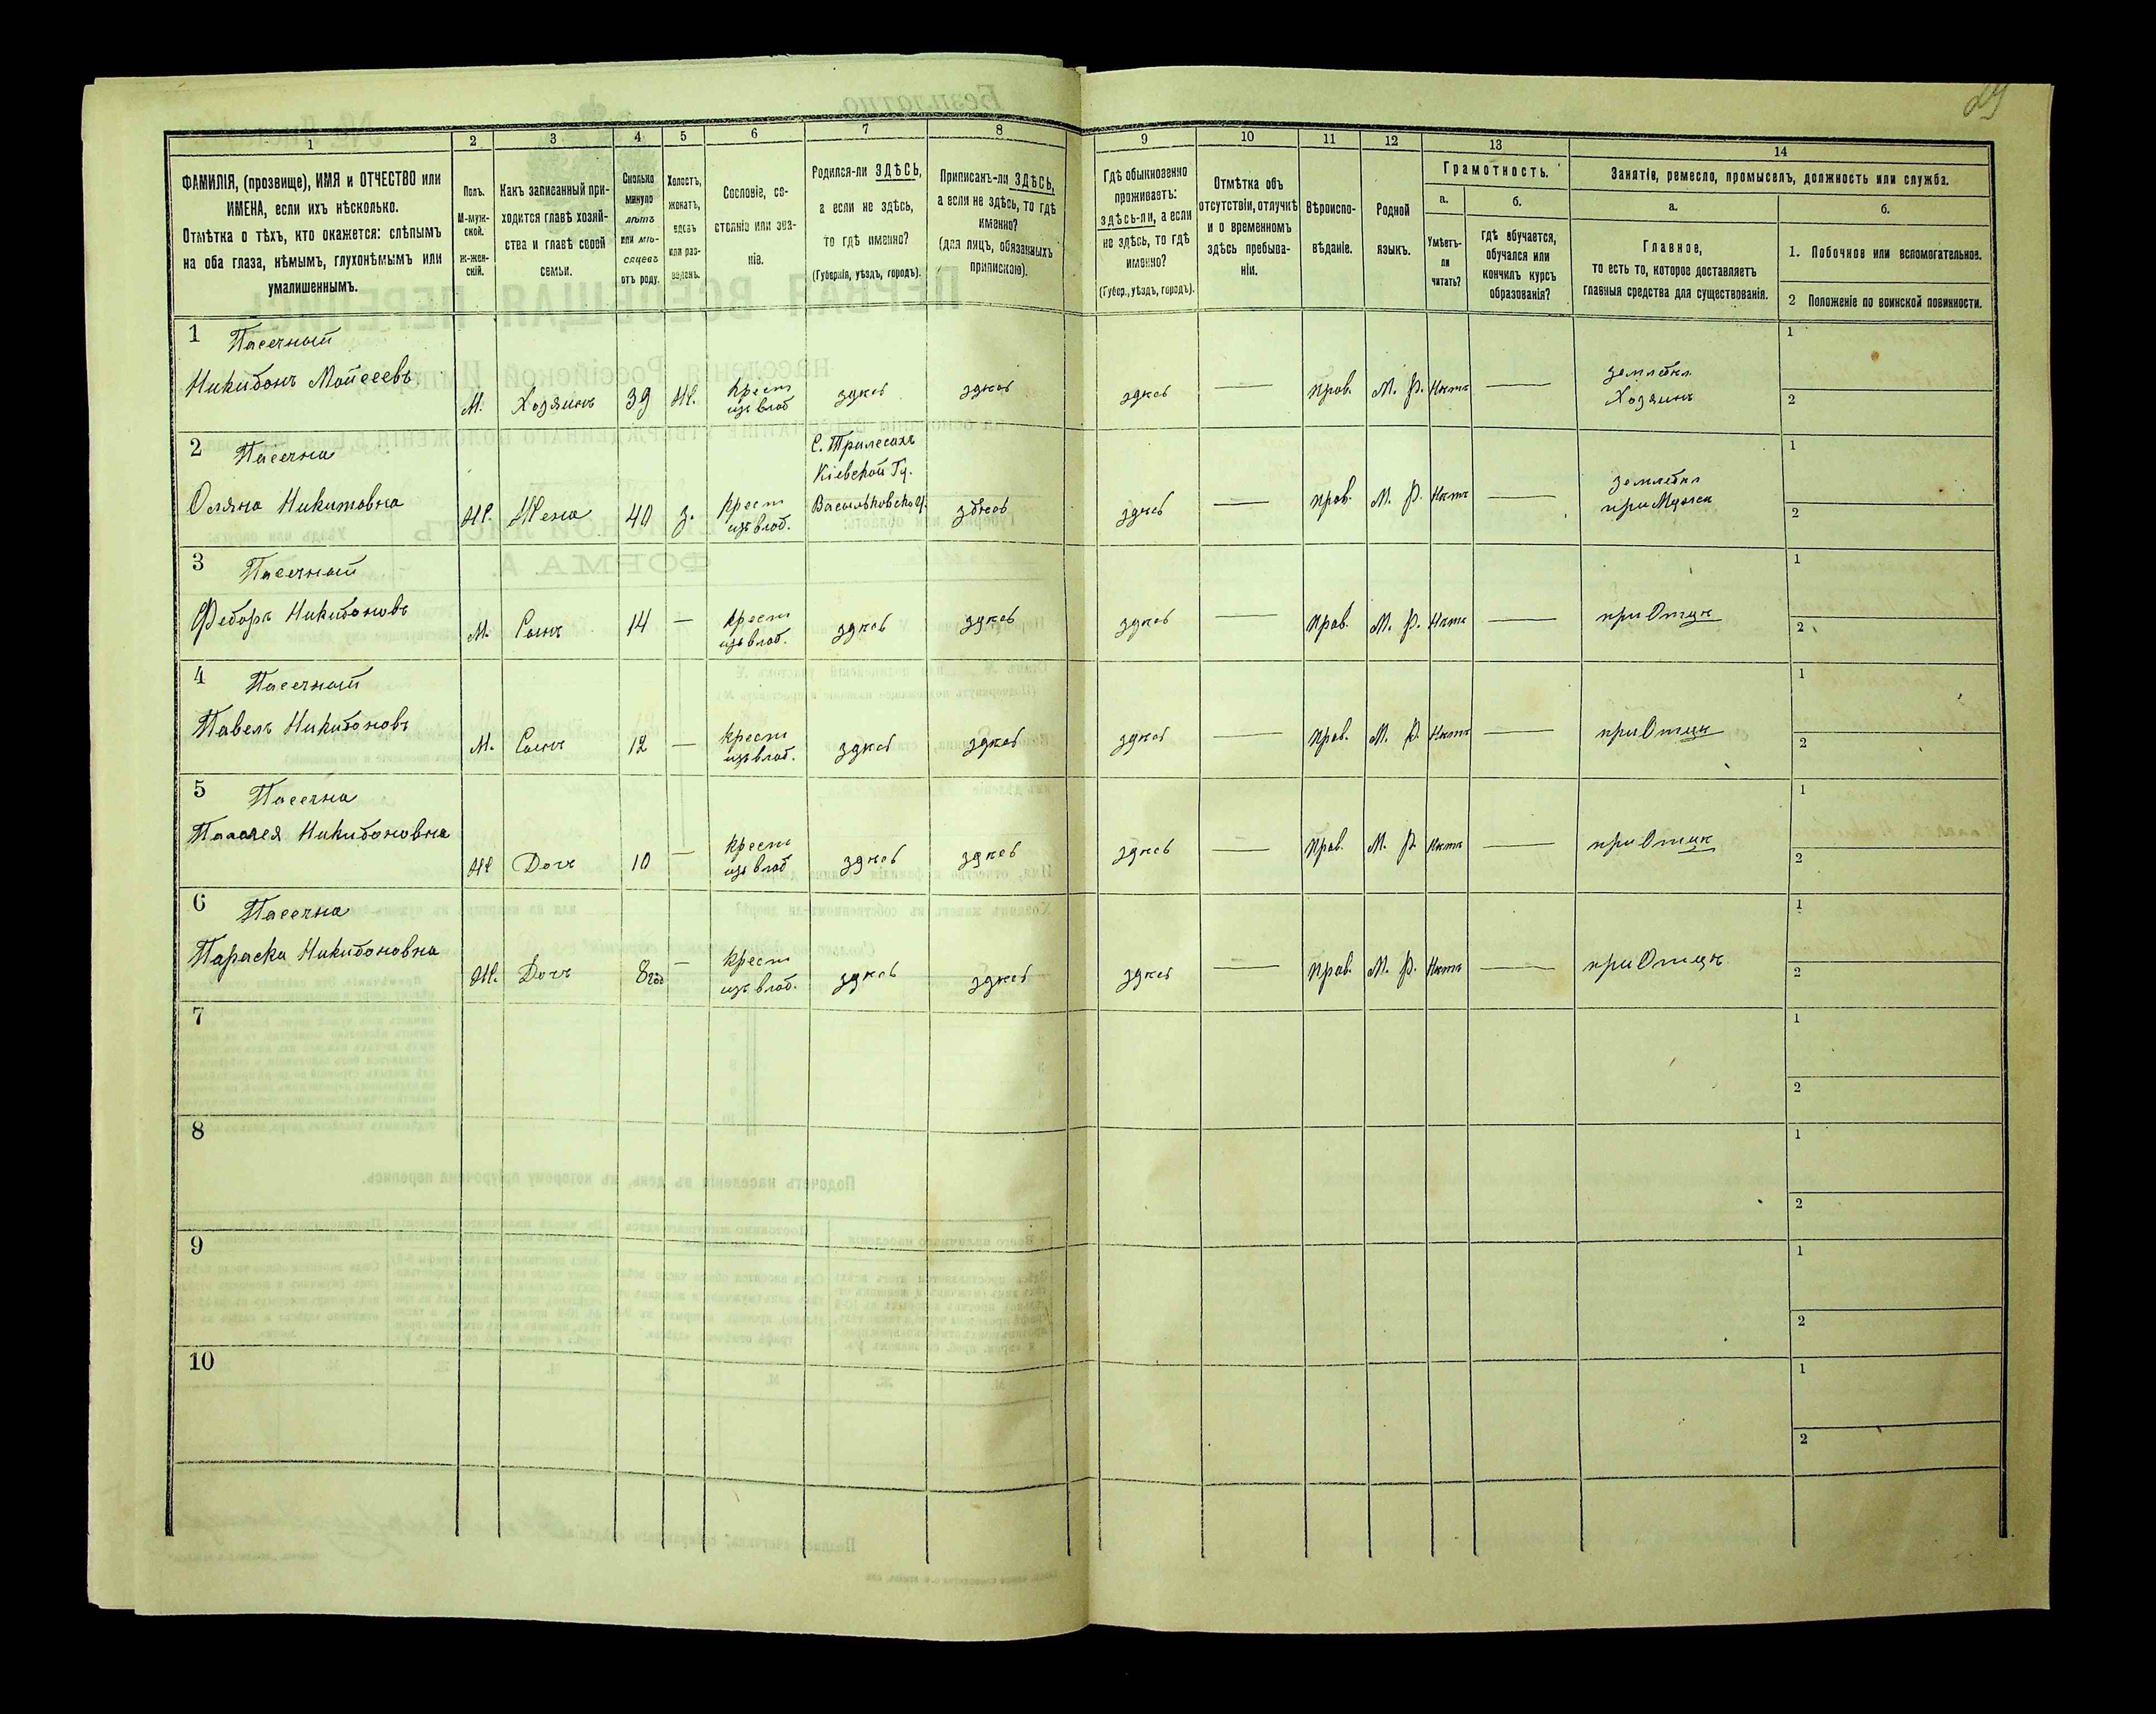 29
1 2 3 4 5 6 7 8 9 10 11 12 13 14
ФАМИЛІЯ, (прозвище), ИМЯ и ОТЧЕСТВО или
ИМЕНА, если ихъ нѣсколько.
Отмѣтка о тѣхъ, кто окажется: слѣпымъ
на оба глаза, нѣмымъ, глухонѣмымъ или
умалишеннымъ.
Полъ.
М-муж-
ской.
ж-жен-
скій.
Какъ записанный при-
ходится главѣ хозяй-
ства и главѣ своей
семьи.
Сколько
минуло
лѣтъ
или мѣ-
сяцевъ
отъ роду.
Холостъ,
женатъ,
вдовъ
или раз-
веденъ.
Сословіе, со-
стояніе или зва-
ніе.
Родился-ли ЗДѢСЬ,
а если не здѣсь,
то гдѣ именно?
(Губернія, уѣздъ, городъ).
Приписанъ-ли ЗДѢСЬ,
а если не здѣсь, то гдѣ
именно?
(для лицъ, обязанныхъ
припискою).
Гдѣ обыкновенно
проживаетъ:
здѣсь-ли, а если
не здѣсь, то гдѣ
именно?
(Губер., уѣздъ, городъ).
Отмѣтка объ
отсутствіи, отлучкѣ
и о временномъ
здѣсь пребыва-
ніи.
Вѣроиспо-
вѣданіе.
Родной
языкъ.
Грамотность.
а.
Умѣетъ-
ли
читать?
б.
гдѣ обучается,
обучался или
кончилъ курсъ
образованія?
Занятіе, ремесло, промыселъ, должность или служба.
а.
Главное,
то есть то, которое доставляетъ
главныя средства для существованія.
б.
1. Побочное или вспомогательное.
2 Положеніе по воинской повинности.
1 Пасечный
Никифонъ Мойсеевъ М. Хозяинъ 39 Ж. Крест изъ влад здѣсь здѣсь здѣсь — прав. М. Р. Нѣтъ — землебол Хозяинъ 1 2
2 Пасечна
Оляна Никитовна Ж. Жена 40 з. Крест изъ влад. С. Трилесахъ Кіевской Гу. Васильковско У. здѣсь здѣсь — прав. М. Р. Нѣтъ — при Мужѣ 1 2
3 Пасечный
Федоръ Никифоновъ М. Сынъ 14 — Крест изъ влад. здѣсь здѣсь здѣсь — прав. М. Р. Нѣтъ — при Отцѣ 1 2
4 Пасечный
Павелъ Никифоновъ М. Сынъ 12 — Крест изъ влад. здѣсь здѣсь здѣсь — прав. М. Р. Нѣтъ — при Отцѣ 1 2
5 Пасечна
Палагея Никифоновна Ж Дочь 10 — Крест изъ влад здѣсь здѣсь здѣсь — прав. М. Р. Нѣтъ — при Отцѣ 1 2
6 Пасечна
Параска Никифоновна Ж. Дочь 8 год — Крест изъ влад. здѣсь здѣсь здѣсь — прав. М. Р. Нѣтъ — при Отцѣ 1 2
7 1 2
8 1 2
9 1 2
10 1 2